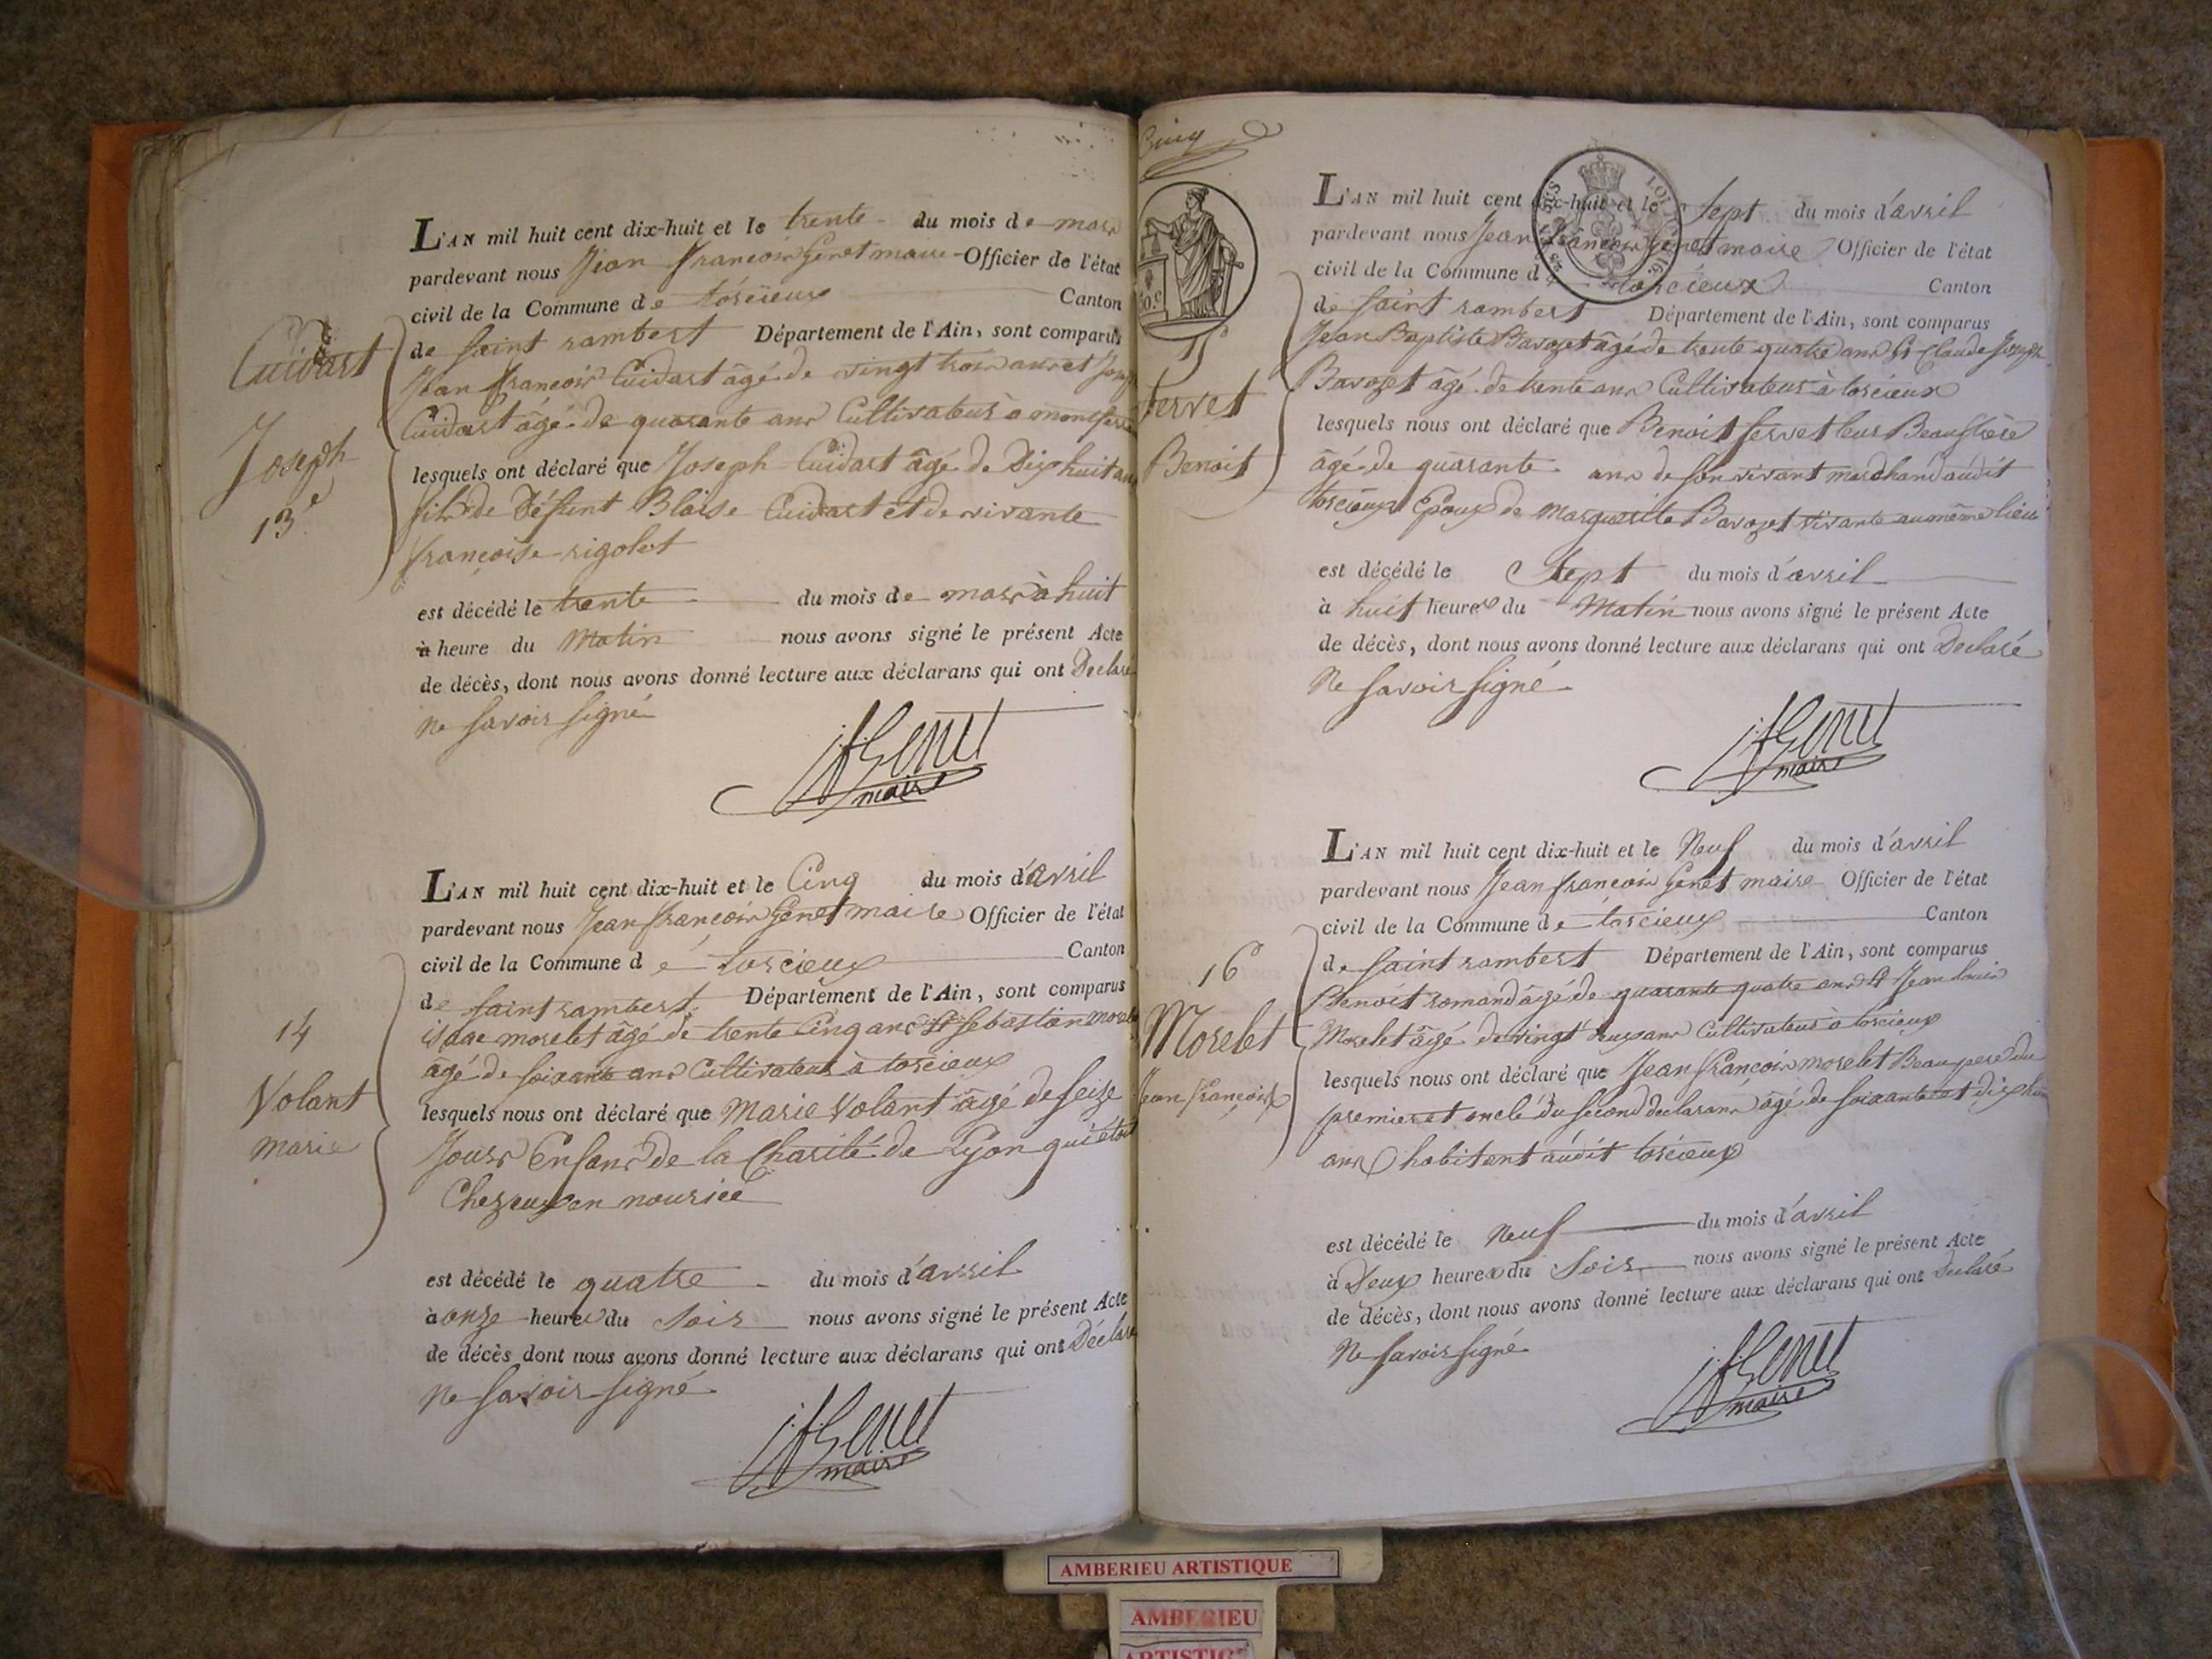 Cuidart
Joseph
13e
L'AN mil huit cent dix-huit et le trente du mois de mars
pardevant nous Jean françois Genet maire Officier de l'état
civil de la Commune de torcieux Canton
de saint rambert Département de l'Ain, sont comparus
Jean françois Cuidart âgé de vingt trois ans et Joseph
Cuidart âgé de quarante ans Cultivateurs à
lesquels ont déclaré que Joseph Cuidart âgé de Dix huit ans
fils de Défunt Blaise Cuidart et de vivante
françoise rigolet
est décédé le trente du mois de mars à huit
à heure du Matin nous avons signé le présent Acte
de décès, dont nous avons donné lecture aux déclarans qui ont Déclaré
ne savoir signé
jf Genet
maire
14
Volant
marie
L'AN mil huit cent dix-huit et le Cinq du mois d'avril
pardevant nous Jean françois Genet maire Officier de l'état
civil de la Commune de torcieux Canton
de saint rambert Département de l'Ain, sont comparus
morelet âgé de trente Cinq ans et Sebastian morelet
âgé de soixante ans Cultivateurs à torcieux
lesquels nous ont déclaré que Marie Volant âgé de seize
Jours Enfans de la Charité de Lyon qui étoit
Chez eux en nourice
est décédé le quatre du mois d'avril
à onze heures du Soir nous avons signé le présent Acte
de décès dont nous avons donné lecture aux déclarans qui ont Déclaré
ne savoir signé
jf Genet
maire
Cinq
50.c
TIMBRE ROYAL
LOI DE 1816.
15e
fervet
Benoit
L'AN mil huit cent dix-huit et le Sept du mois d'avril
pardevant nous Jean françois Genet maire Officier de l'état
civil de la Commune d torcieux Canton
de saint rambert Département de l'Ain, sont comparus
Jean Baptiste Bavozet âgé de trente quatre ans et Claude Joseph
Bavozet âgé de trente ans Cultivateurs à torcieux
lesquels nous ont déclaré que Benoit fervet leur Beaufrère
âgé de quarante ans de son vivant marchand audit
torcieux Epoux de Marguerite Bavozet vivante au même lieu
est décédé le Sept du mois d'avril
à huit heures du Matin nous avons signé le présent Acte
de décès, dont nous avons donné lecture aux déclarans qui ont Déclaré
Ne savoir signé
jf Genet
maire
16e
Morelet
Jean françois
L'AN mil huit cent dix-huit et le Neuf du mois d'avril
pardevant nous Jean françois Genet maire Officier de l'état
civil de la Commune de torcieux Canton
de saint rambert Département de l'Ain, sont comparus
Benoit romand âgé de quarante quatre ans et Jean louis
Morelet âgé de vingt deux ans Cultivateurs à torcieux
lesquels nous ont déclaré que Jean françois morelet Beaupere du
premier et oncle du second declarans âgé de soixante et dix huit
ans habitant audit torcieux
est décédé le Neuf du mois d'avril
à Deux heures du Soir nous avons signé le présent Acte
de décès, dont nous avons donné lecture aux déclarans qui ont Déclaré
Ne savoir signé
jf Genet
maire
AMBERIEU ARTISTIQUE
AMBERIEU
ARTISTIC